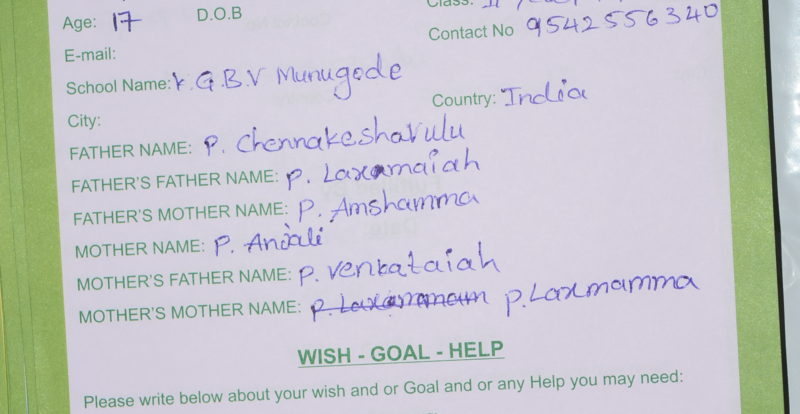 Age: 17 D.O.B Class: II
Contact No 9542556340
E-mail:
School Name: K.G.B.V Munugode
Country: India
City:
FATHER NAME: P. Chennakeshavulu
FATHER'S FATHER NAME: P. Laxamaiah
FATHER'S MOTHER NAME: P. Amshamma
MOTHER NAME: P. Anjali
MOTHER'S FATHER NAME: P. Venkataiah
MOTHER'S MOTHER NAME: P. Laxmamma
WISH - GOAL - HELP
Please write below about your wish and or Goal and or any Help you may need: